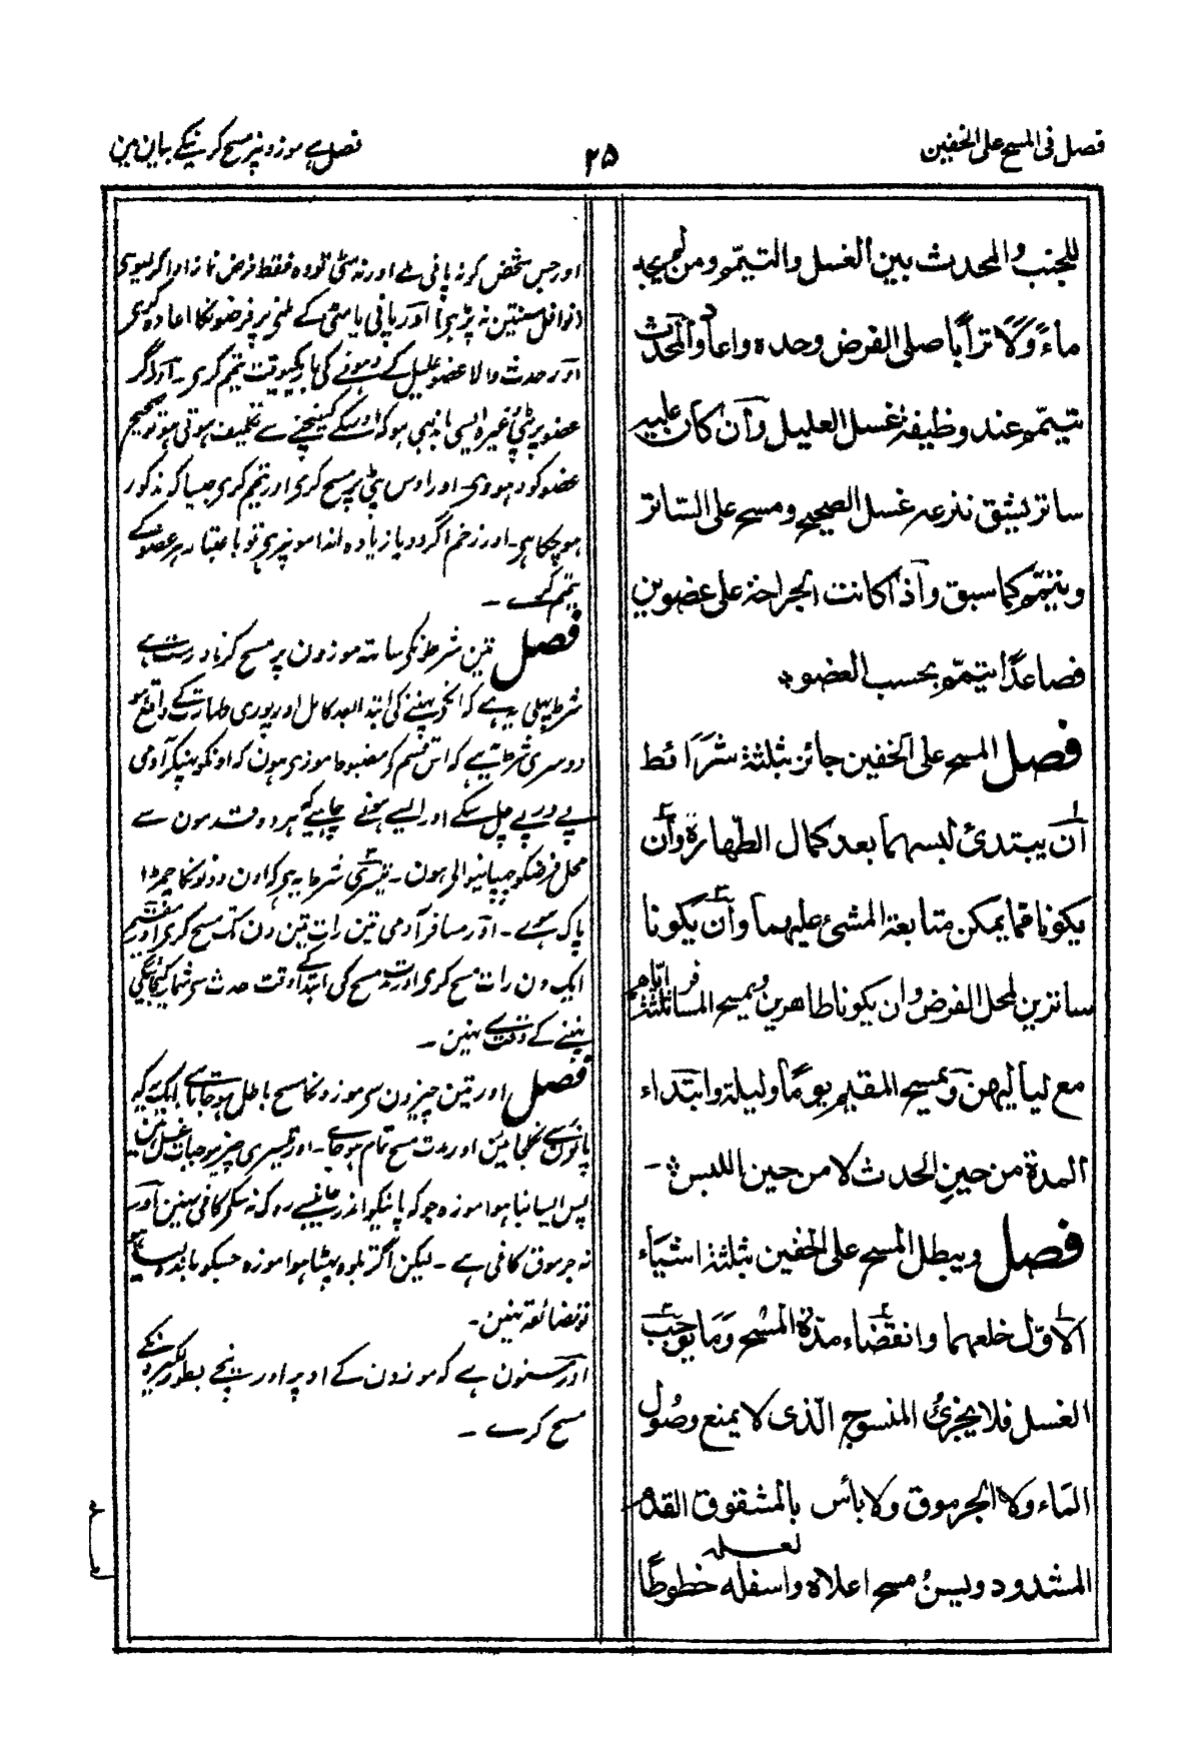 فصل فی المسح علی الخفین
۲۵
فصل ہے موزونپر مسح کرنیکے بیان مین
للجنب والمحدث بین الغسل والتیمّم ومن لم یجد
ماءً وَلَا تراباً صلی الفرض وحده واعاد والمحدث
تیمّم عند وظیفة غسل العلیل وأن کان علیه
ساتر یشق نزعه غسل الصحیح ومسح علی السّاتر
ویتیمّم کما سبق وأذا کانت الجراحة علی عضوین
فصاعدًا تیمّم بحسب العضو
فصل المسح علی الخفین جائز بثلثة شَرَائط
أن یبتدئ لبسهما بعد کمال الطّهارة وأن
یکونا ممّا یمکن متابعة المشی علیهما وأن یکونا
ساترین لمحل الفرض وان یکونا طاهرین ویمسح المسافر ثلثة ایّام
مع لیالیهن ویمسح المقیم یومًا ولیلة وابتداء
المدة من حین الحدث لا من حین اللبس -
فصل ویبطل المسح علی الخفین بثلثة اشیاء
الاوّل خلعهما وانقضاء مدّة المسح وَمَا یوجب
الغسل فلا یجزئ المنسوج الّذی لا یمنع وصُول
المَاء ولا الجرموق ولا بأس بالمشقوق القدم
لعله
المشدود ویسنُ مسح اعلاه واسفله خطوطًا
اور جس شخص کو نہ پانی ملے اور نہ مٹی تو وہ فقط فرض نماز ادا کر لیوی
نوافل سنتین نہ پڑہی اور پانی یا مٹی کے ملنی پر فرضونکا اعادہ کری
اور حدث والا عضو علیل کے دہونے کی وقت تیمم کری ۔ اور اگر
عضو پر پٹی وغیرہ ایسی بندہی ہو کہ اوسکے کہینچنے سے تکلیف ہوتی ہو تو صحیح
عضو کو دہووی اور اوس پٹی پر مسح کری اور تیمم کری جیسا کہ مذکور
ہو چکا ہی ۔ اور زخم اگر دو یا زیادہ اعضا پر ہی تو باعتبار ہر عضو کے
تیمم کرے ۔
فصل تین شرطونکی ساتہ موزون پر مسح کرنا درست ہے
شرط پہلی یہ ہے کہ انکے پہننے کی ابتدا بعد کامل اور پوری طہارت کے واقع ہو
دوسری شرط یہ ہے کہ اس قسم کو مضبوط موزی ہون کہ اونکو پہنکر آدمی
پے در پے چل سکے اور ایسے ہونے چاہیے کہ ہر دو قدمون سے
محل فرض کو چہپانیوالی ہون ۔ تیسری شرط یہ ہی کہ اون دونونکا چمڑا
پاک ہووے ۔ اور مسافر آدمی تین رات تین دن تک مسح کری اور مقیم
ایک دن رات مسح کری اور مدت مسح کی ابتدا وقت حدث سی شمار کیجائیگی
پہننے کے وقت سے نہین ۔
فصل اور تین چیزون سی موزونکا مسح باطل ہو جاتا ہے ایک یہ کہ
پانون سے نکلجائین اور مدت مسح تمام ہو جائے ۔ اور تیسری چیز موجبات غسل ہین
پس ایسا بنا ہوا موزہ جو کہ پانیکو اندر جانیسے روک نہ سکی کافی نہین اور
نہ جرموق کافی ہے ۔ لیکن اگر پہٹا ہوا موزہ جسکو باندہ لیا ہو
تو مضائقہ نہین ۔
اور مسنون ہے کہ موزون کے اوپر اور نیچے بطور لکیرونکے
مسح کرے ۔